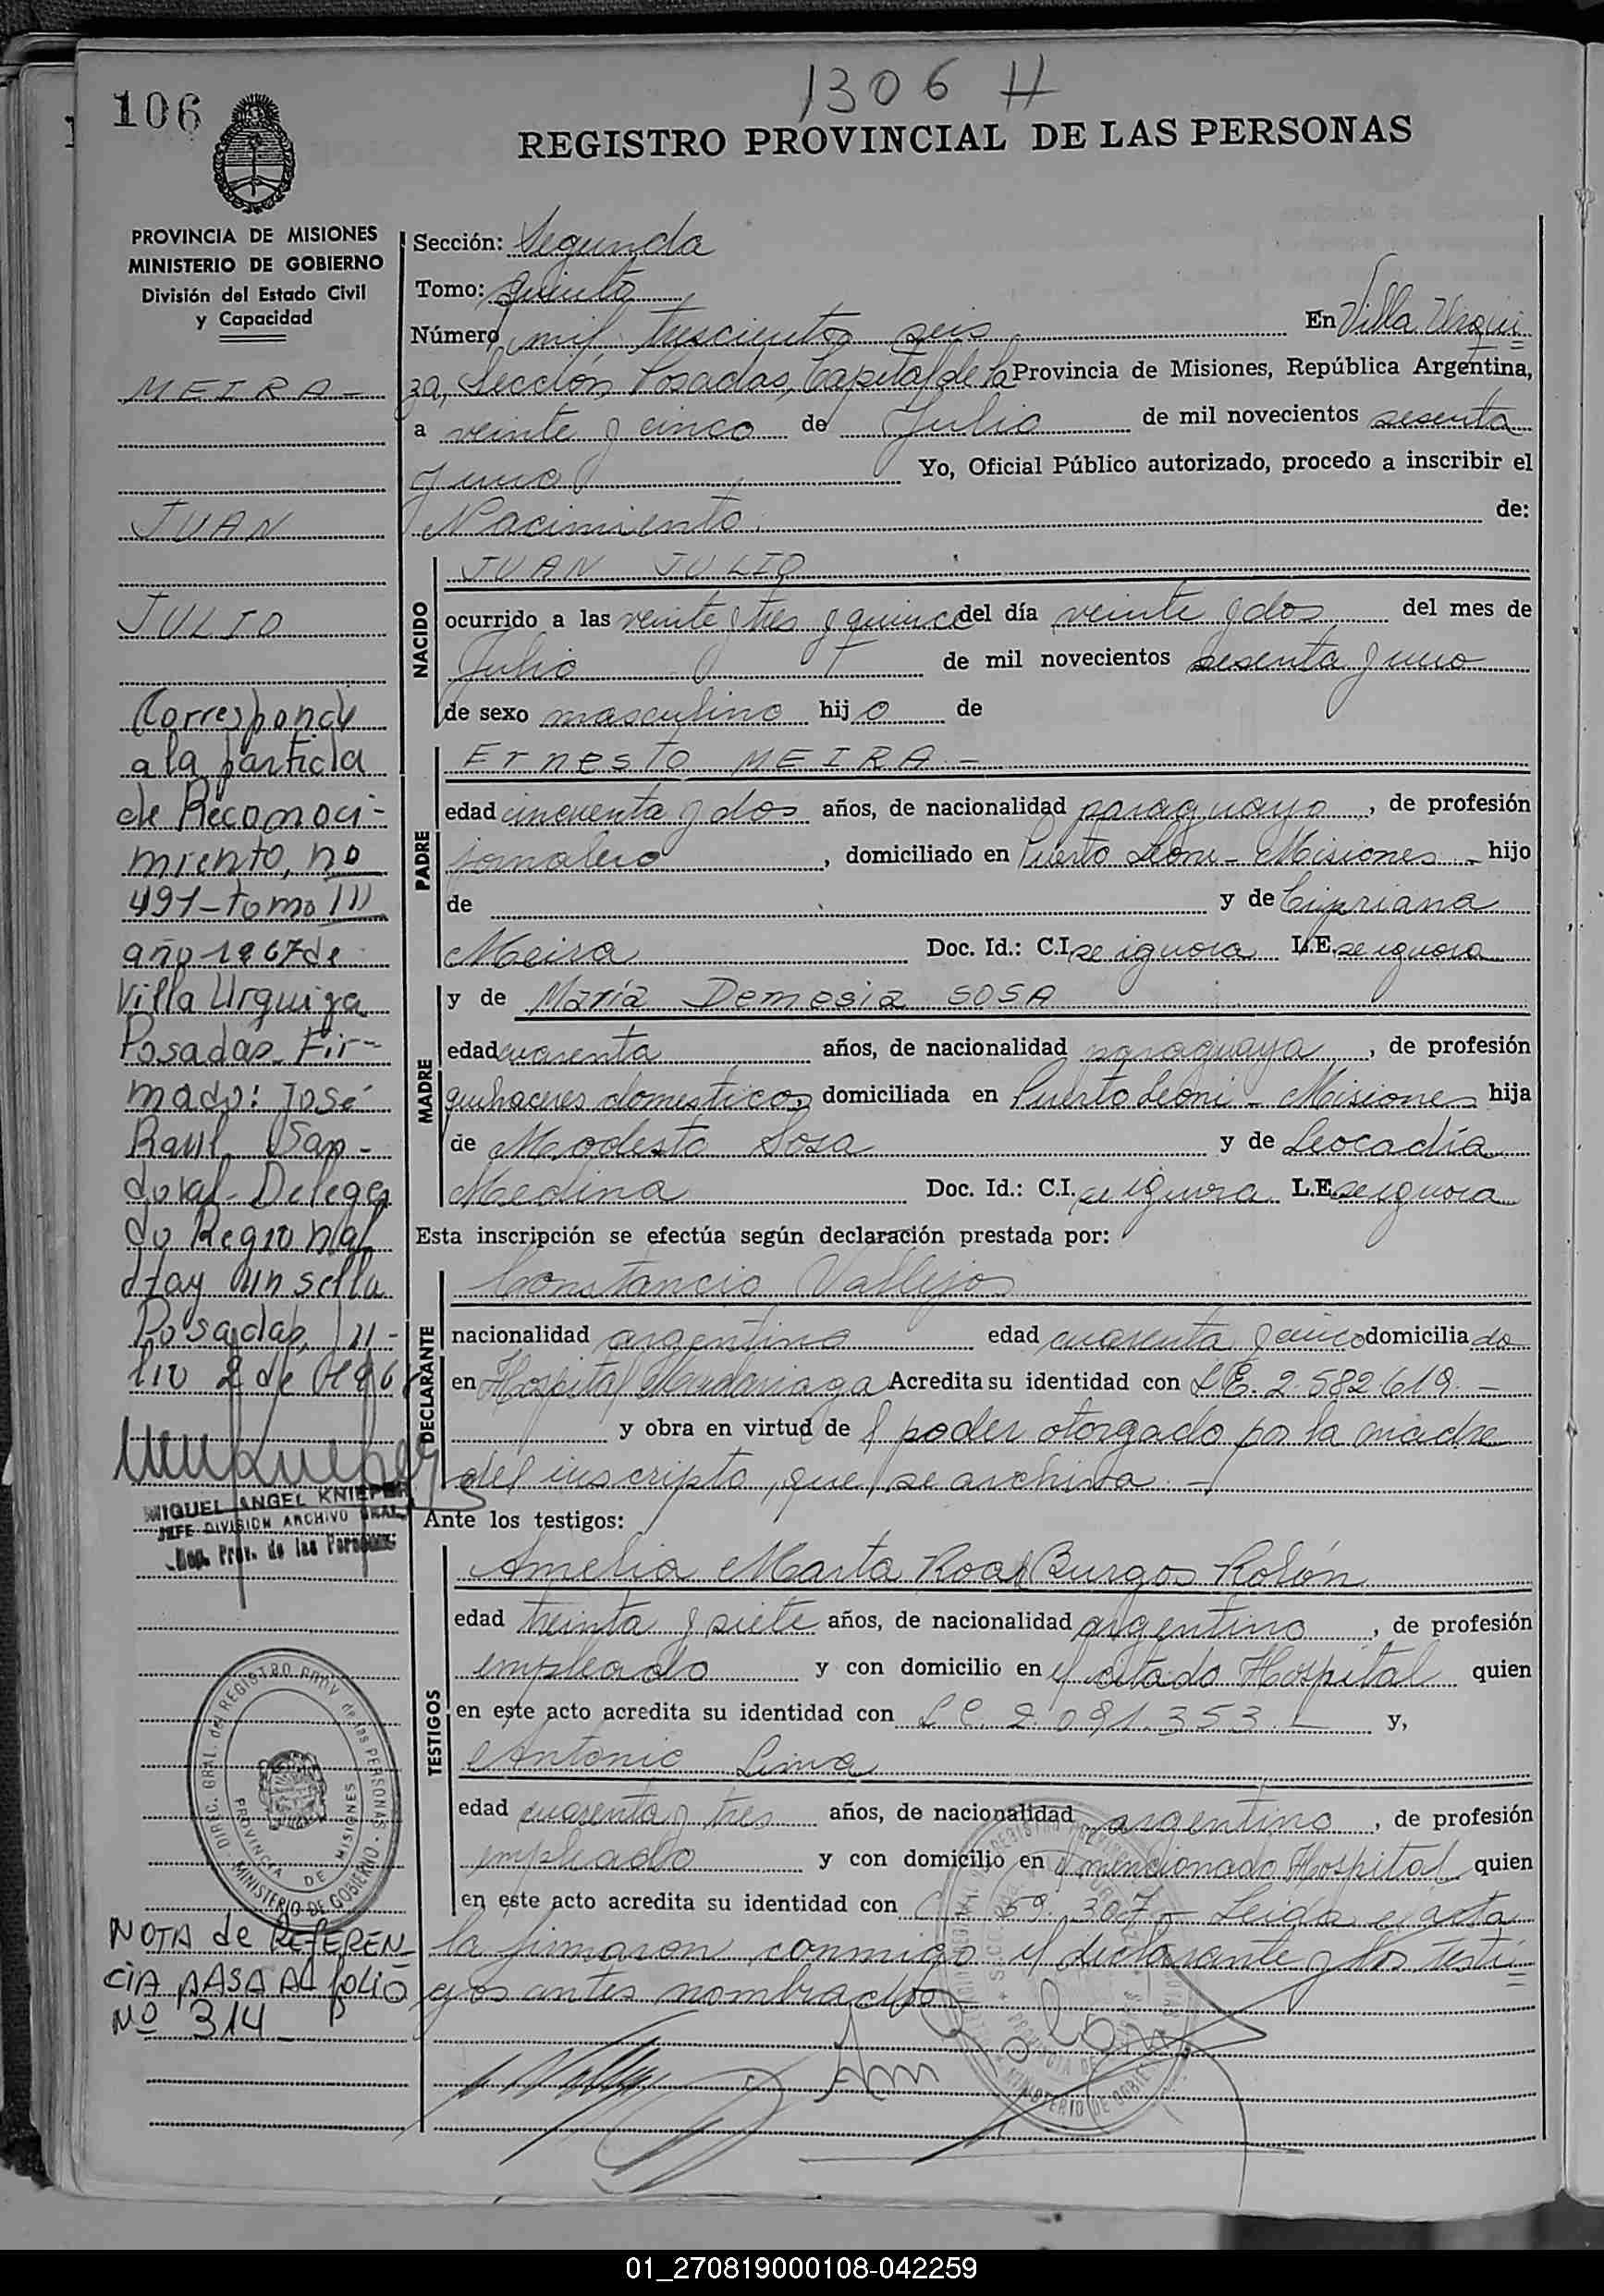 106
1306 H
REGISTRO PROVINCIAL DE LAS PERSONAS
PROVINCIA DE MISIONES
MINISTERIO DE GOBIERNO
División del Estado Civil
y Capacidad
MEIRA -
JUAN
JULIO
Corresponde
a la partida
de Reconoci-
miento, no
491 - tomo III
año 1967 de
Villa Urquiza
Posadas. Fir-
mado: José
Raul San-
doval - Delega
do Regional
Hay un sello
Posadas, Ju-
lio 2 de
MIGUEL ANGEL KNIEPER
JEFE DIVISION ARCHIVO GRAL.
Rep. Prov. de las Personas
DIREC. GRAL. del REGISTRO PROV. de las PERSONAS
PROVINCIA DE MISIONES
MINISTERIO DE GOBIERNO
NOTA de REFEREN-
CIA PASA AL folio
Nº 314 -
Sección: Segunda
Tomo: Quinto
Número mil trescientos seis En Villa Urqui=
za, Sección Posadas, Capital de la Provincia de Misiones, República Argentina,
a veinte y cinco de Julio de mil novecientos sesenta
y uno Yo, Oficial Público autorizado, procedo a inscribir el
Nacimiento. de:
NACIDO
JUAN JULIO
ocurrido a las veinte y tres y quince del día veinte y dos del mes de
Julio de mil novecientos sesenta y uno
de sexo masculino hijo de
PADRE
Ernesto MEIRA -
edad cincuenta y dos años, de nacionalidad paraguayo, de profesión
jornalero, domiciliado en Puerto Leoni - Misiones - hijo
de y de Cipriana
Meira Doc. Id.: C.I. se ignora L.E. se ignora
MADRE
y de María Demesia SOSA
edad cuarenta años, de nacionalidad paraguaya, de profesión
quehaceres domesticos, domiciliada en Puerto Leoni - Misiones hija
de Modesto Sosa y de Leocadía
Medina Doc. Id.: C.I. se ignora L.E. se ignora
Esta inscripción se efectúa según declaración prestada por:
DECLARANTE
Constancio Vallejos
nacionalidad argentino edad cuarenta y cinco domiciliado
en Hospital Madariaga Acredita su identidad con L.E. 2.582.619. -
y obra en virtud del poder otorgado por la madre
del inscripto, que se archiva. -
Ante los testigos:
TESTIGOS
Amelia Marta Burgos Rolón
edad treinta y siete años, de nacionalidad argentino, de profesión
empleado y con domicilio en el citado Hospital quien
en este acto acredita su identidad con L.C. 2.091.353. - y,
Antonio Lima
edad cuarenta y tres años, de nacionalidad argentino, de profesión
empleado y con domicilio en el mencionado Hospital quien
en este acto acredita su identidad con 59.307 - Leida el acta
la firmaron conmigo el declarante y los testi=
gos antes nombrados
01_270819000108-042259